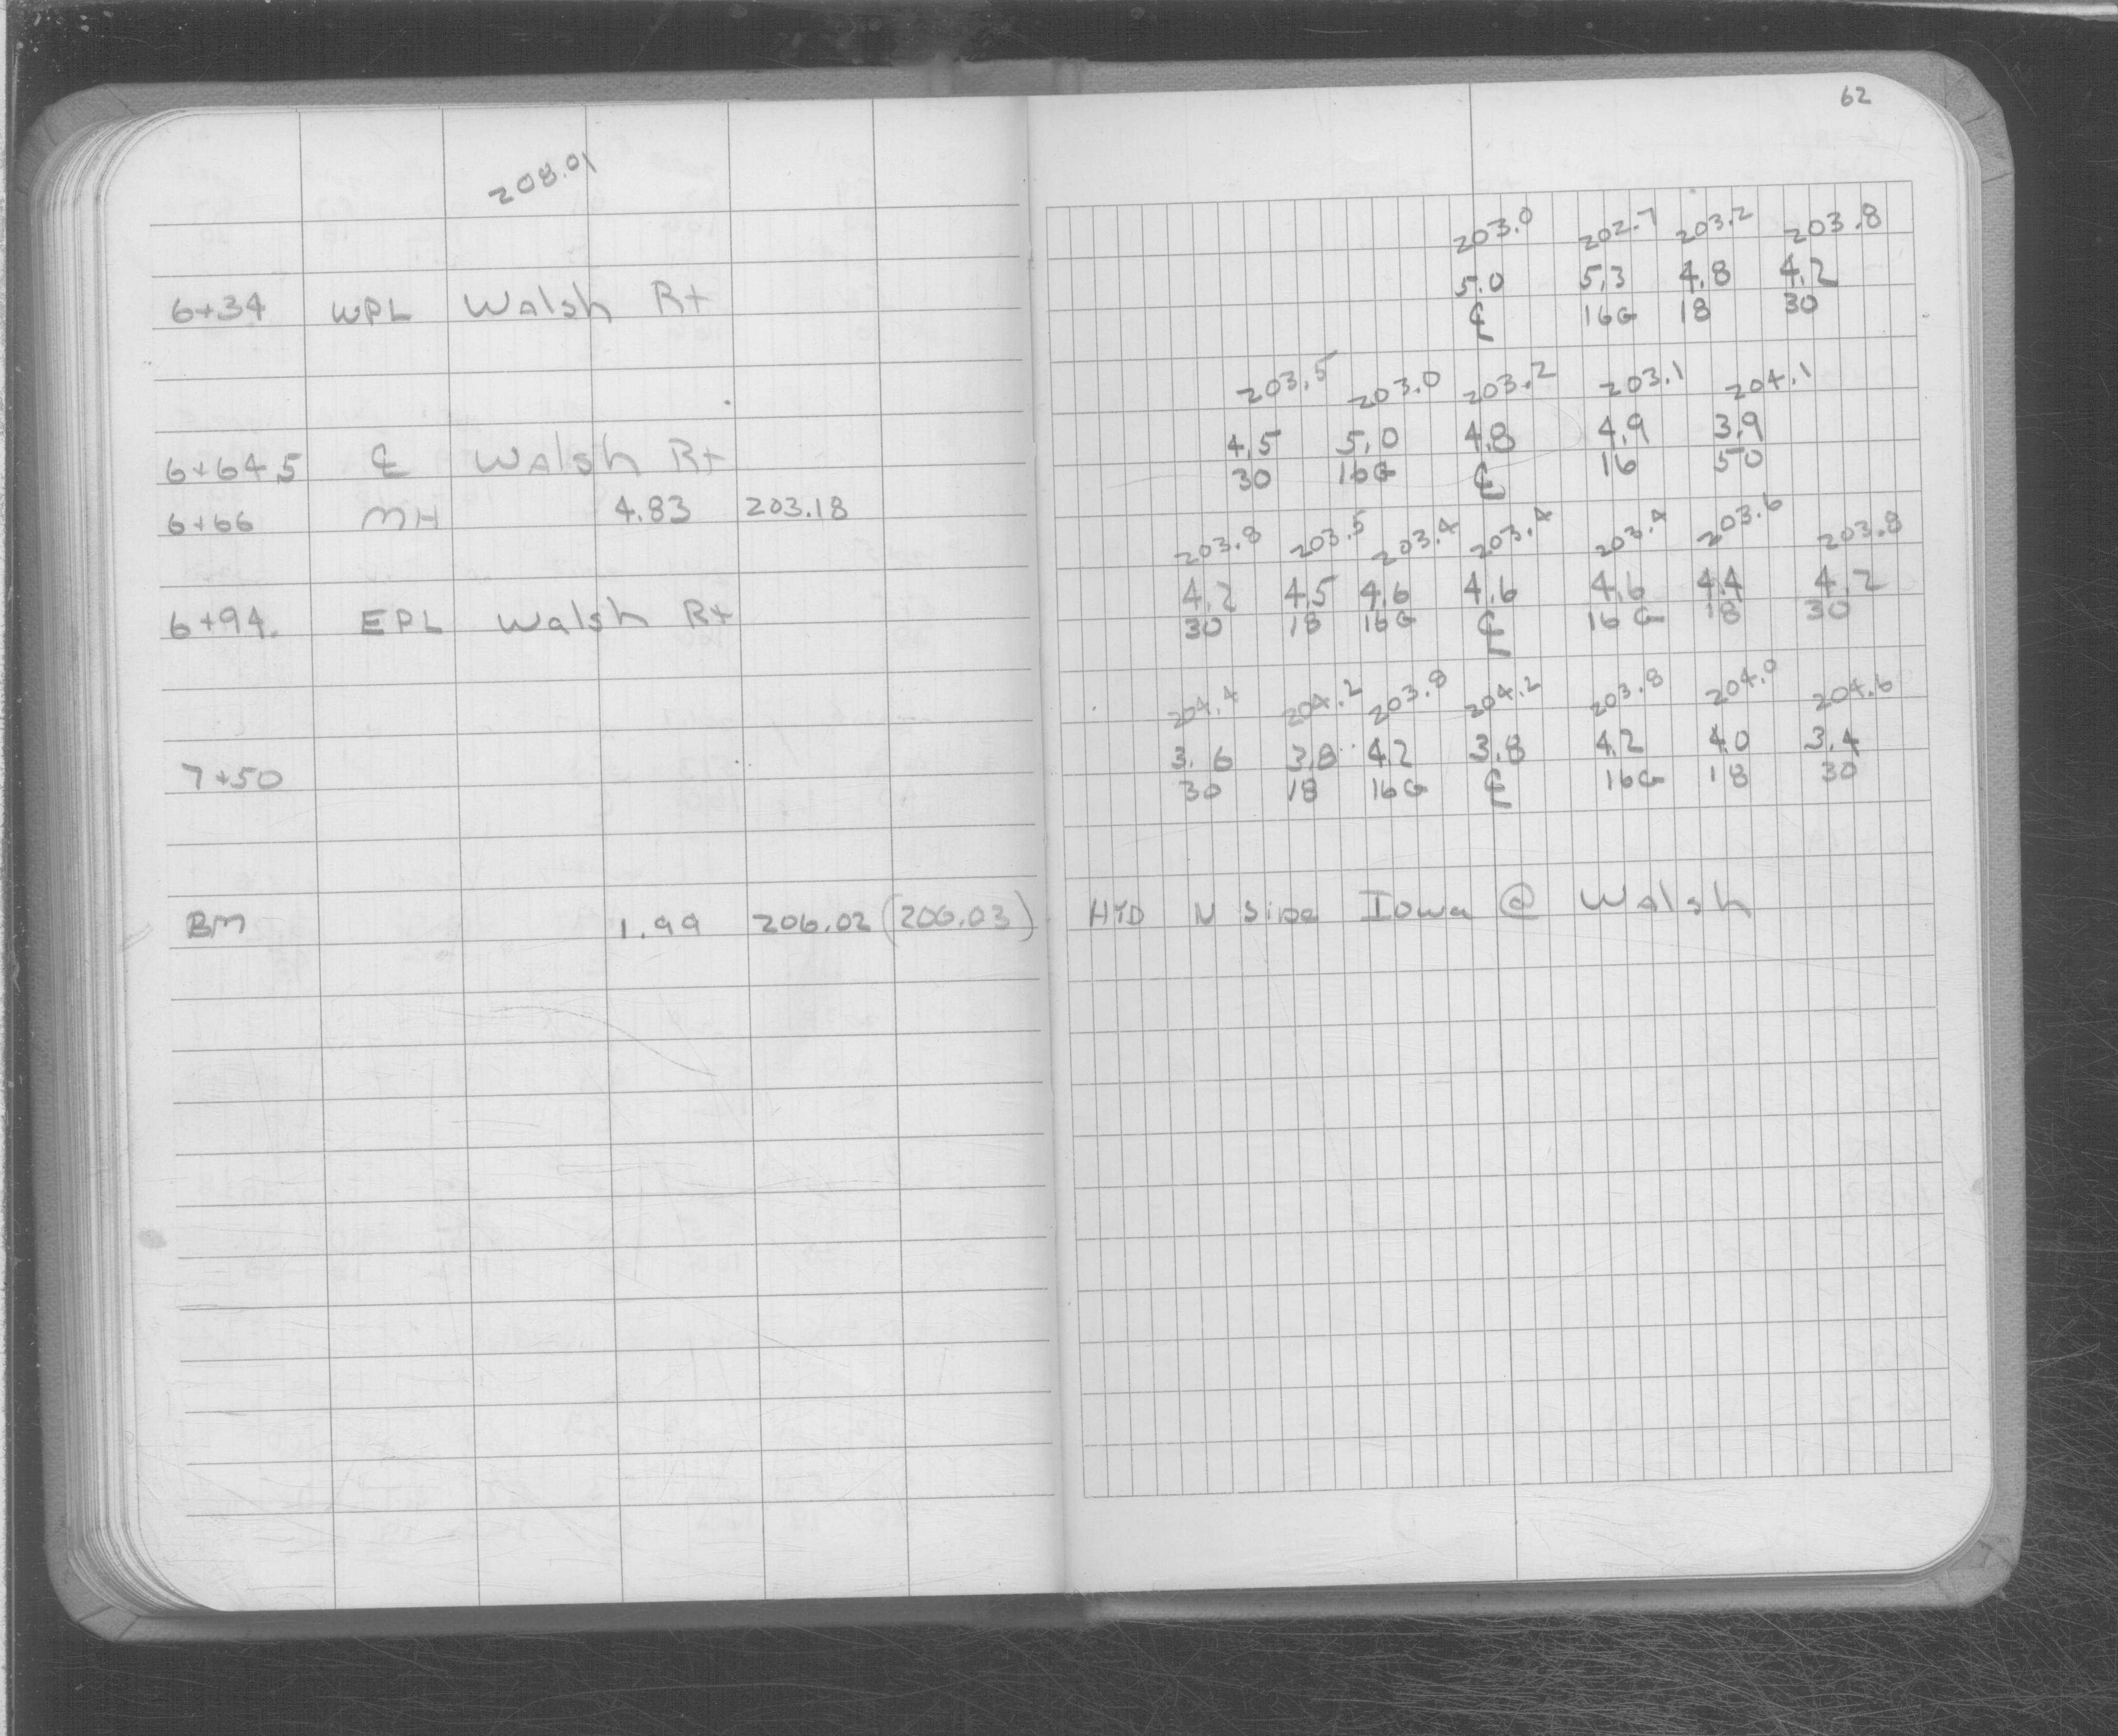 62
208.01
203.0 202.7 203.2 203.8
5.0 5.3 4.8 4.2
6+34 WPL Walsh Rt
℄ 16G 18 30
203.5 203.0 203.2 203.1 204.1
4.5 5.0 4.8 4.9 3.9
6+64.5 ℄ Walsh Rt
30 16G ℄ 16 50
6+66 MH 4.83 203.18
203.8 203.5 203.4 203.4 203.4 203.6 203.8
4.2 4.5 4.6 4.6 4.6 4.4 4.2
6+94. EPL Walsh Rt
30 18 16G ℄ 16G 18 30
204.4 204.2 203.8 204.2 203.8 204.0 204.6
3.6 3.8 4.2 3.8 4.2 4.0 3.4
7+50
30 18 16G ℄ 16G 18 30
BM 1.99 206.02 (206.03) HYD N Side Iowa @ Walsh